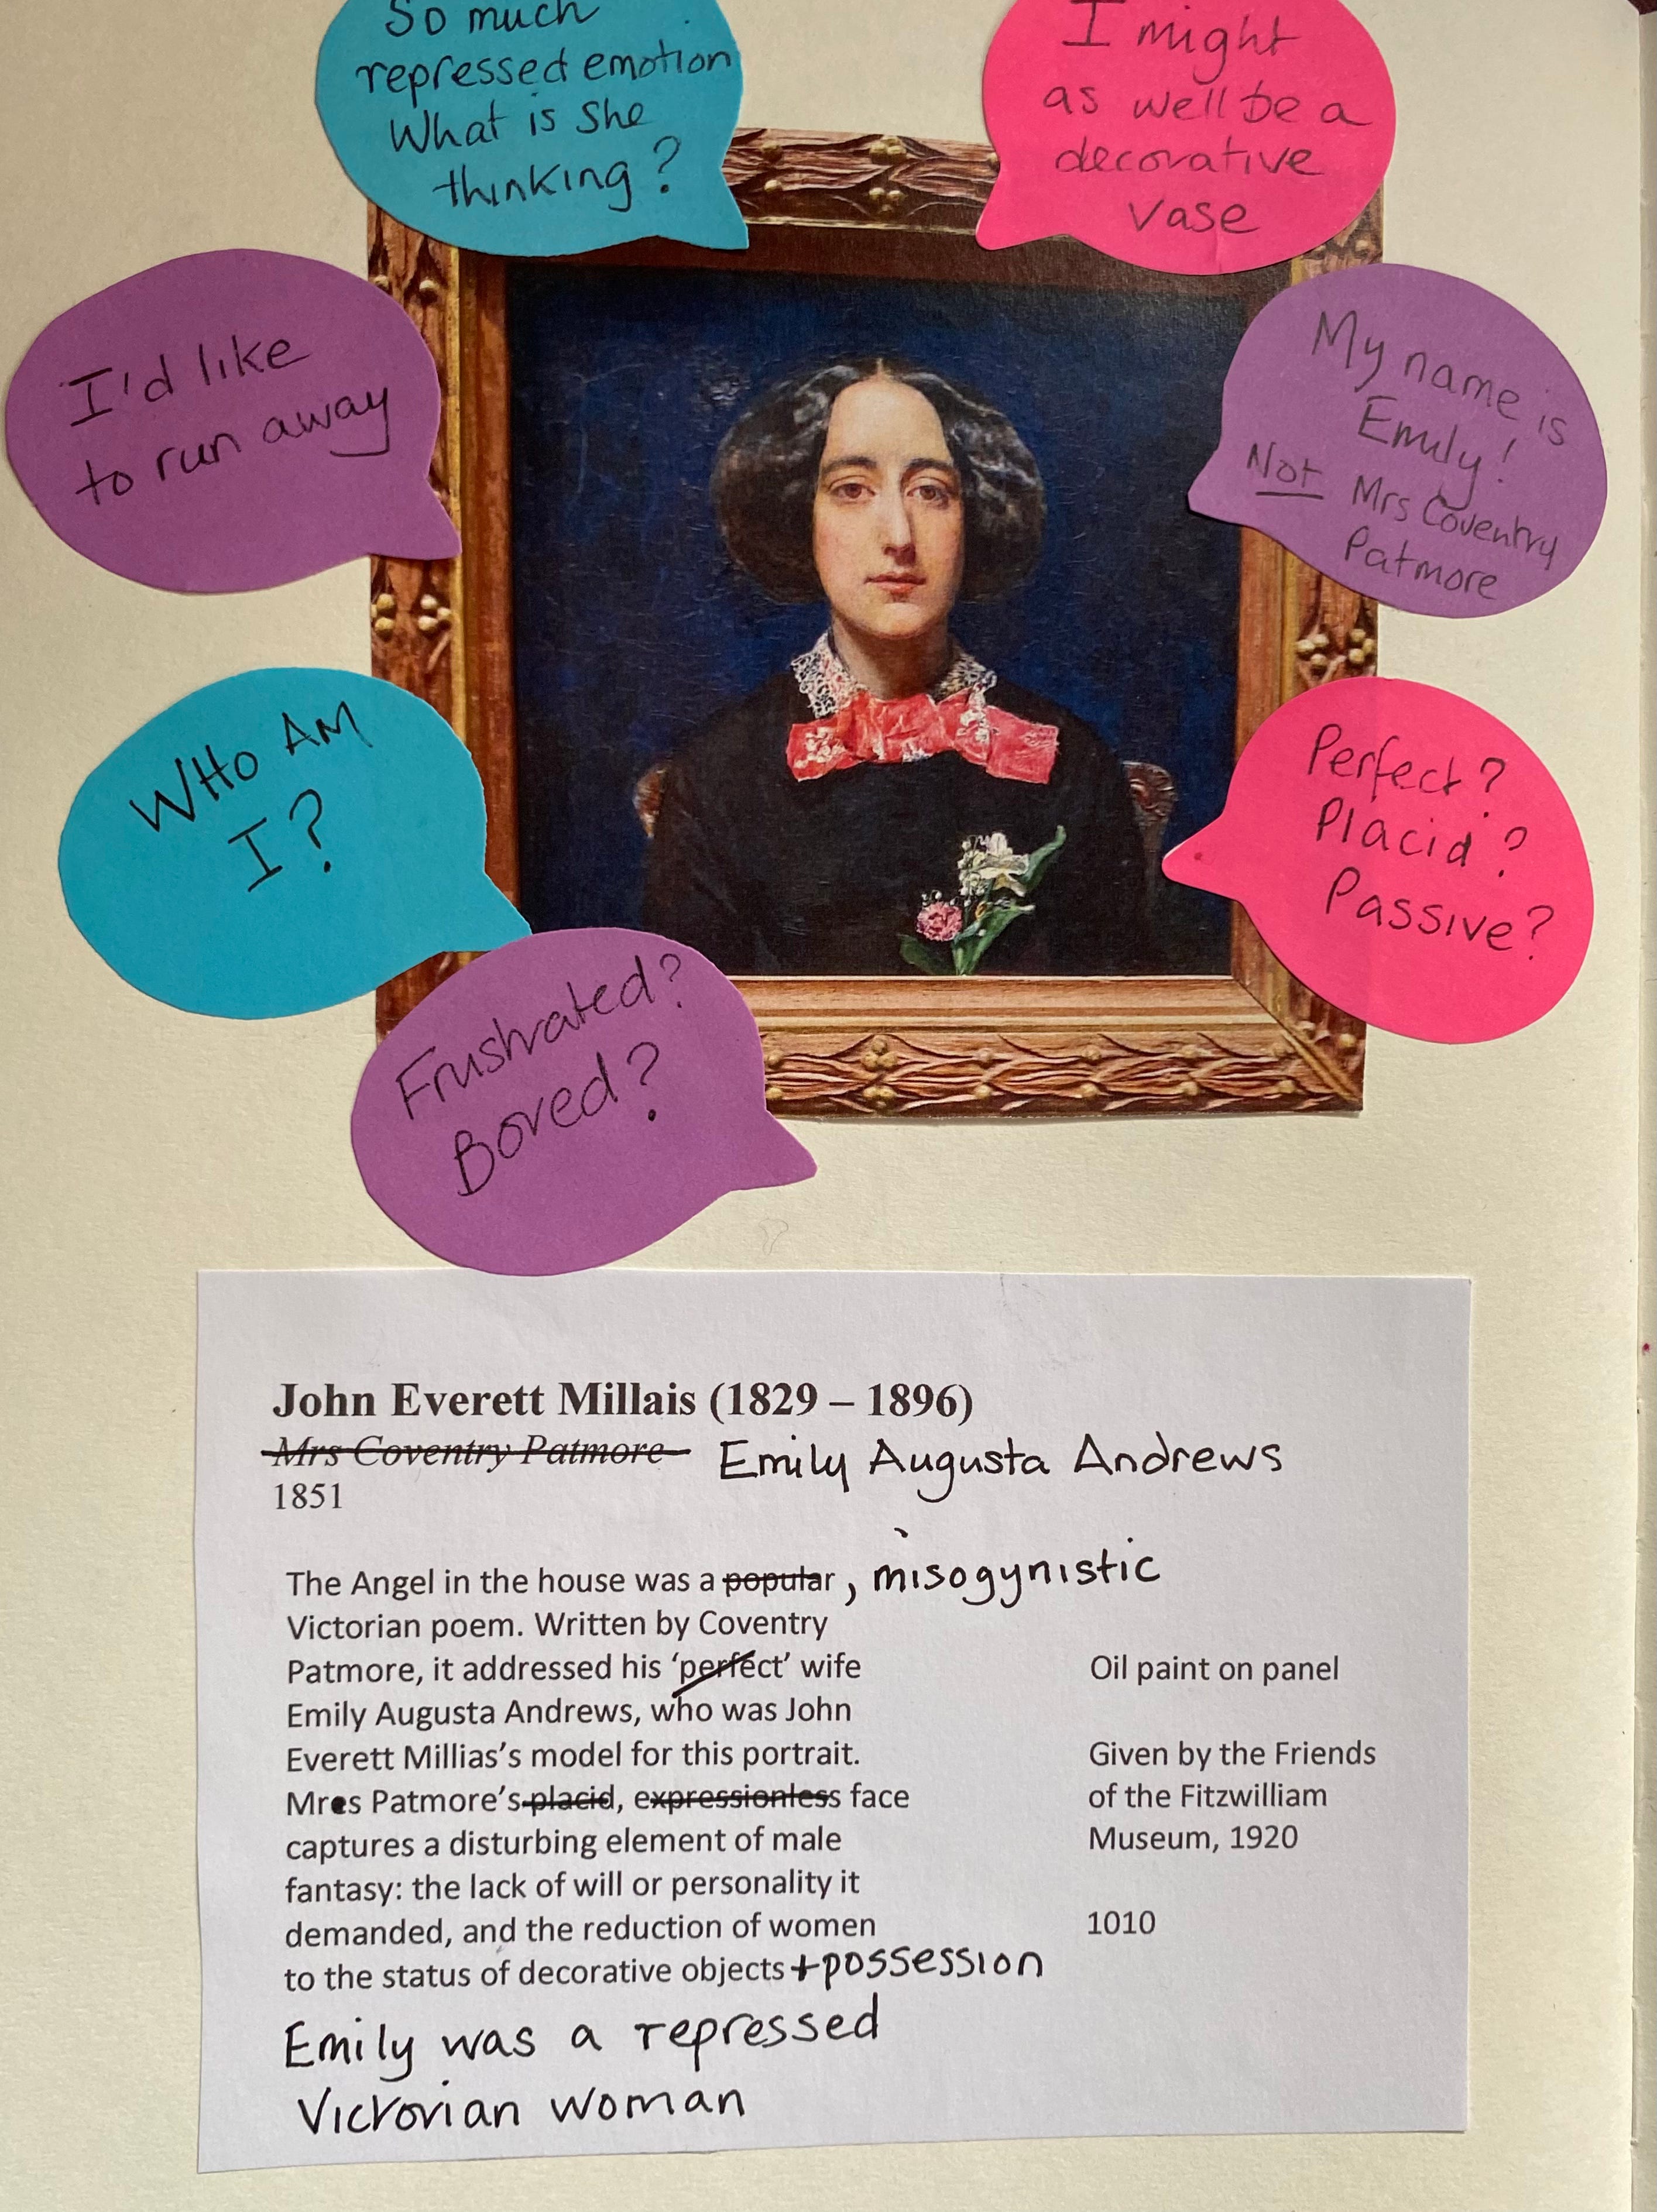 So much
repressed emotion
What is she
thinking?
I might
as well be a
decorative
vase
I'd like
to run away
My name is
Emily!
Not Mrs Coventry
Patmore
WHO AM
I?
Perfect?
Placid?
Passive?
Frustrated?
Bored?
John Everett Millais (1829 – 1896)
Mrs Coventry Patmore Emily Augusta Andrews
1851
The Angel in the house was a popular, misogynistic
Victorian poem. Written by Coventry
Patmore, it addressed his ‘perfect’ wife
Emily Augusta Andrews, who was John
Everett Millias’s model for this portrait.
Mres Patmore’s placid, expressionless face
captures a disturbing element of male
fantasy: the lack of will or personality it
demanded, and the reduction of women
to the status of decorative objects + possession
Emily was a repressed
Victorian woman
Oil paint on panel
Given by the Friends
of the Fitzwilliam
Museum, 1920
1010